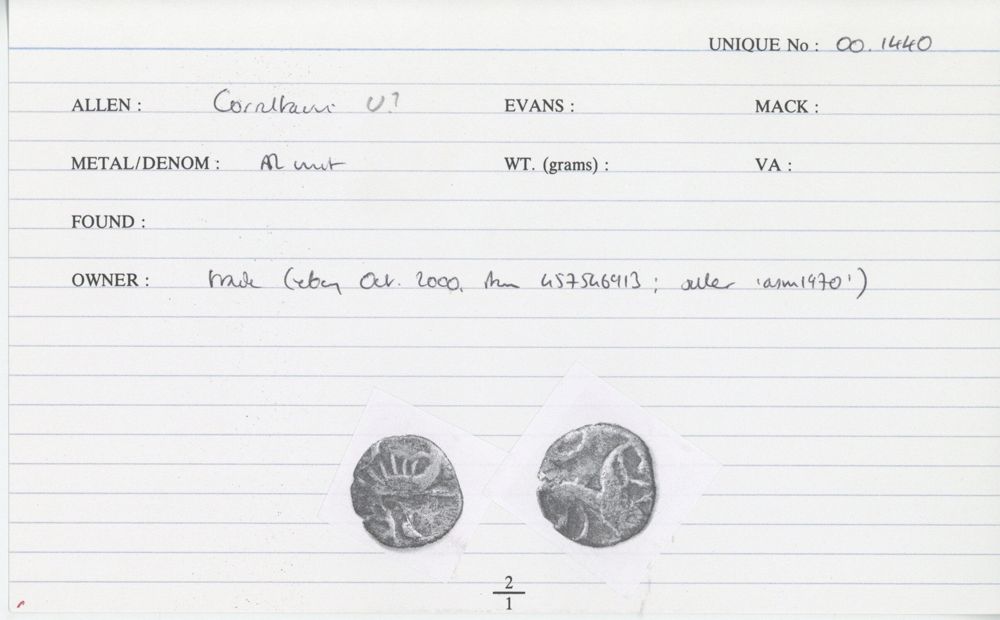 UNIQUE No : 00.1440
ALLEN : Corieltauvi U? EVANS : MACK :
METAL/DENOM : AR unit WT. (grams) : VA :
FOUND :
OWNER : trade (eBay Oct. 2000, Item 457546913; seller 'asm1970')
2
1